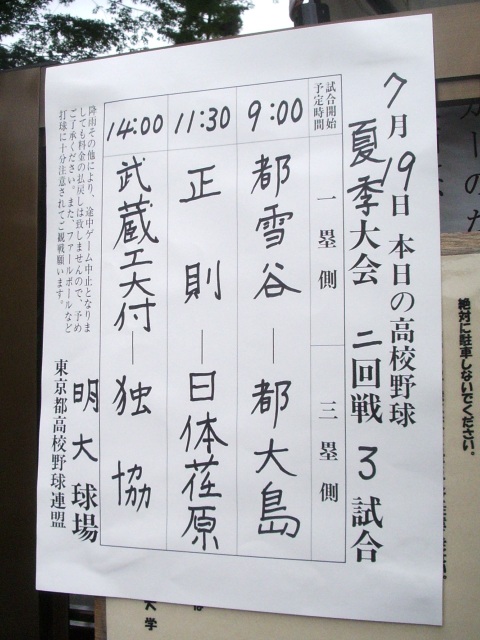 7月19日 本日の高校野球
夏季大会 二回戦 3試合
試合開始
予定時間
一塁側
三塁側
9:00
都雪谷ー都大島
11:30
正則ー日体荏原
14:00
武蔵工大付ー独協
降雨その他により、途中ゲーム中止となりま
しても料金の払戻しは致しませんので、予め
ご了承ください。また、ファールボールなど
打球に十分注意されてご観戦願います。
明大球場
東京都高校野球連盟
絶対に駐車しないでください。
大学